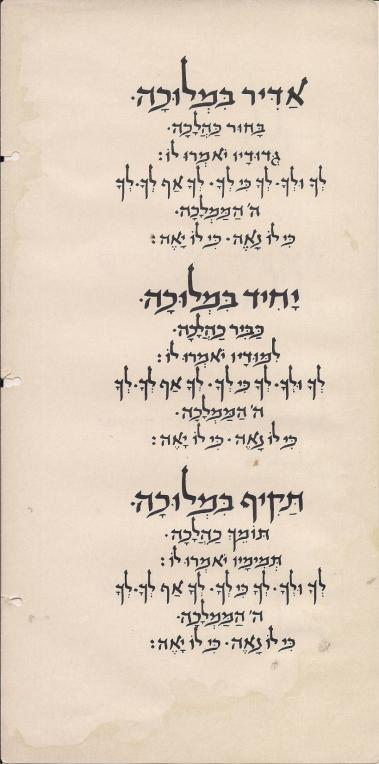 אַדִּיר בִּמְלוּכָה·
בָּחוּר כַּהֲלָכָה·
גְּדוּדָיו יֹאמְרוּ לוֹ:
לְךָ וּלְךָ· לְךָ כִּי לְךָ· לְךָ אַף לְךָ· לְךָ
ה׳ הַמַּמְלָכָה·
כִּי לוֹ נָאֶה· כִּי לוֹ יָאֶה:
יָחִיד בִּמְלוּכָה·
כַּבִּיר כַּהֲלָכָה·
לִמּוּדָיו יֹאמְרוּ לוֹ:
לְךָ וּלְךָ· לְךָ כִּי לְךָ· לְךָ אַף לְךָ· לְךָ
ה׳ הַמַּמְלָכָה·
כִּי לוֹ נָאֶה· כִּי לוֹ יָאֶה:
תַּקִּיף בִּמְלוּכָה·
תּוֹמֵךְ כַּהֲלָכָה·
תְּמִימָיו יֹאמְרוּ לוֹ:
לְךָ וּלְךָ· לְךָ כִּי לְךָ· לְךָ אַף לְךָ· לְךָ
ה׳ הַמַּמְלָכָה·
כִּי לוֹ נָאֶה· כִּי לוֹ יָאֶה: